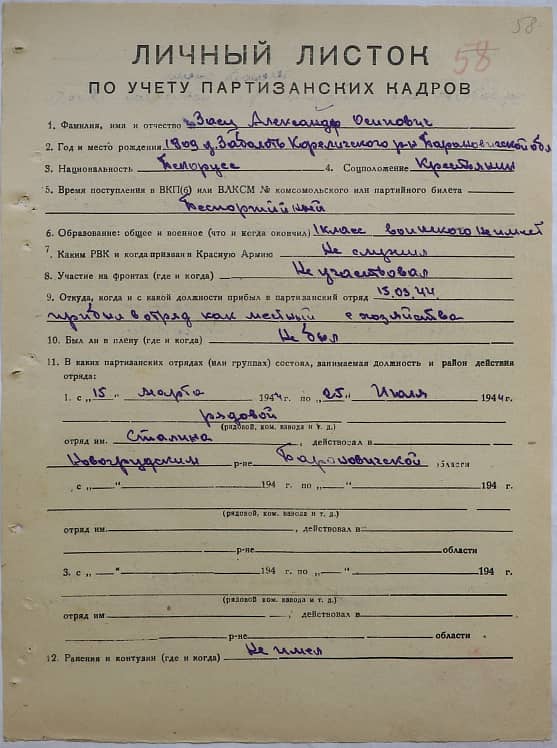 58
58
ЛИЧНЫЙ ЛИСТОК
ПО УЧЕТУ ПАРТИЗАНСКИХ КАДРОВ
1. Фамилия, имя и отчество Заец Александр Осипович
2. Год и место рождения 1809 д. Заболоть Кореличского р-н Барановичской обл
3. Национальность Белорусс 4. Соцположение Крестьянин
5. Время поступления в ВКП(б) или ВЛКСМ № комсомольского или партийного билета
Беспортийный
6. Образование: общее и военное (что и когда окончил) 1 класс воинского не имеет
7. Каким РВК и когда призван в Красную Армию Не служил
8. Участие на фронтах (где и когда) Не участвовал
9. Откуда, когда и с какой должности прибыл в партизанский отряд 15.03.44
прибыл в отряд как месный с хозяйства
10. Был ли в плену (где и когда) Не был
11. В каких партизанских отрядах (или группах) состоял, занимаемая должность и район действия
отряда:
1. с „15" марта 1944 г. по „25" Июля 1944 г.
рядовой
(рядовой, ком. взвода и т. д.)
отряд им. Сталина, действовал в
Новогрудским р-не Барановичской области
, с „ " 194 г. по „ " 194 г.
(рядовой, ком. взвода и т. д.)
отряд им. , действовал в
р-не области
3. с „ " 194 г. по „ " 194 г.
(рядовой, ком. взвода и т. д.)
отряд им , действовал в
р-не области
12. Ранения и контузии (где и когда) Не имел